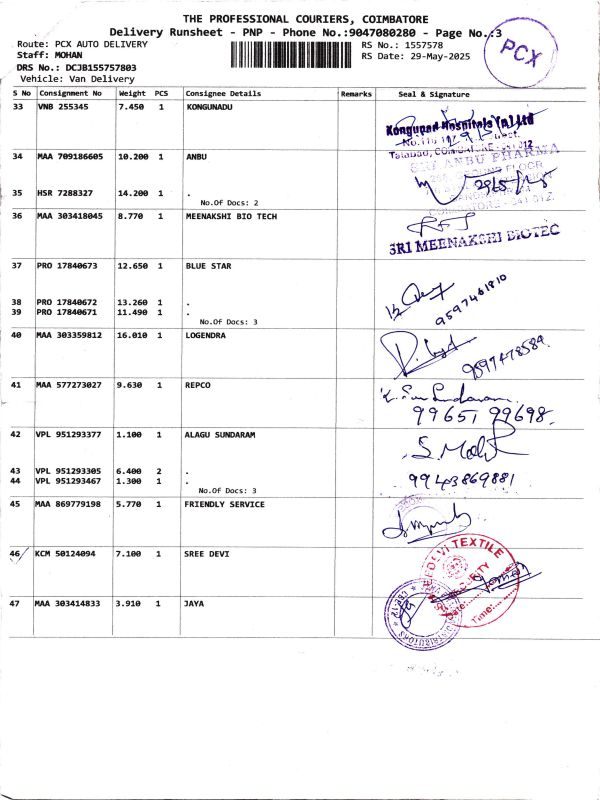 THE PROFESSIONAL COURIERS, COIMBATORE
Delivery Runsheet - PNP - Phone No.:9047080280 - Page No.:3
Route: PCX AUTO DELIVERY RS No.: 1557578
Staff: MOHAN RS Date: 29-May-2025
PCX
DRS No.: DCJB155757803
Vehicle: Van Delivery
S No Consignment No Weight PCS Consignee Details Remarks Seal & Signature
33 VNB 255345 7.450 1 KONGUNADU
Kongunad Hospitals (P) Ltd
COIMBATORE - 641 012
34 MAA 709186605 10.200 1 ANBU
SRI ANBU PHARMA
35 HSR 7288327 14.200 1 .
No.Of Docs: 2
36 MAA 303418045 8.770 1 MEENAKSHI BIO TECH
SRI MEENAKSHI BIOTEC
37 PRO 17840673 12.650 1 BLUE STAR
38 PRO 17840672 13.260 1 .
39 PRO 17840671 11.490 1 .
9597461810
No.Of Docs: 3
40 MAA 303359812 16.010 1 LOGENDRA
9597478589
41 MAA 577273027 9.630 1 REPCO
K. Sundaram
99651 99698
42 VPL 951293377 1.100 1 ALAGU SUNDARAM
43 VPL 951293305 6.400 2 .
44 VPL 951293467 1.300 1 .
99403869881
No.Of Docs: 3
45 MAA 869779198 5.770 1 FRIENDLY SERVICE
46 KCM 50124094 7.100 1 SREE DEVI
SREEDEVI TEXTILE
SECURITY
Date:
Time:
47 MAA 303414833 3.910 1 JAYA
DISTRIBUTORS
CBE-12